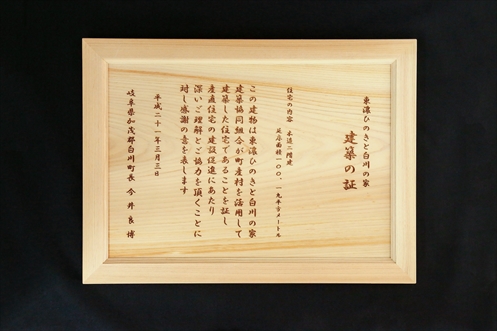 東濃ひのきと白川の家
建築の証
住宅の内容 木造二階建
延床面積一〇〇.一九平方メートル
この建物は東濃ひのきと白川の家
建築協同組合が町産材を活用して
建築した住宅であることを証し
産直住宅の建設促進にあたり
深いご理解とご協力を頂くことに
対し感謝の意を表します
平成二十一年三月三日
岐阜県加茂郡白川町長 今井良博